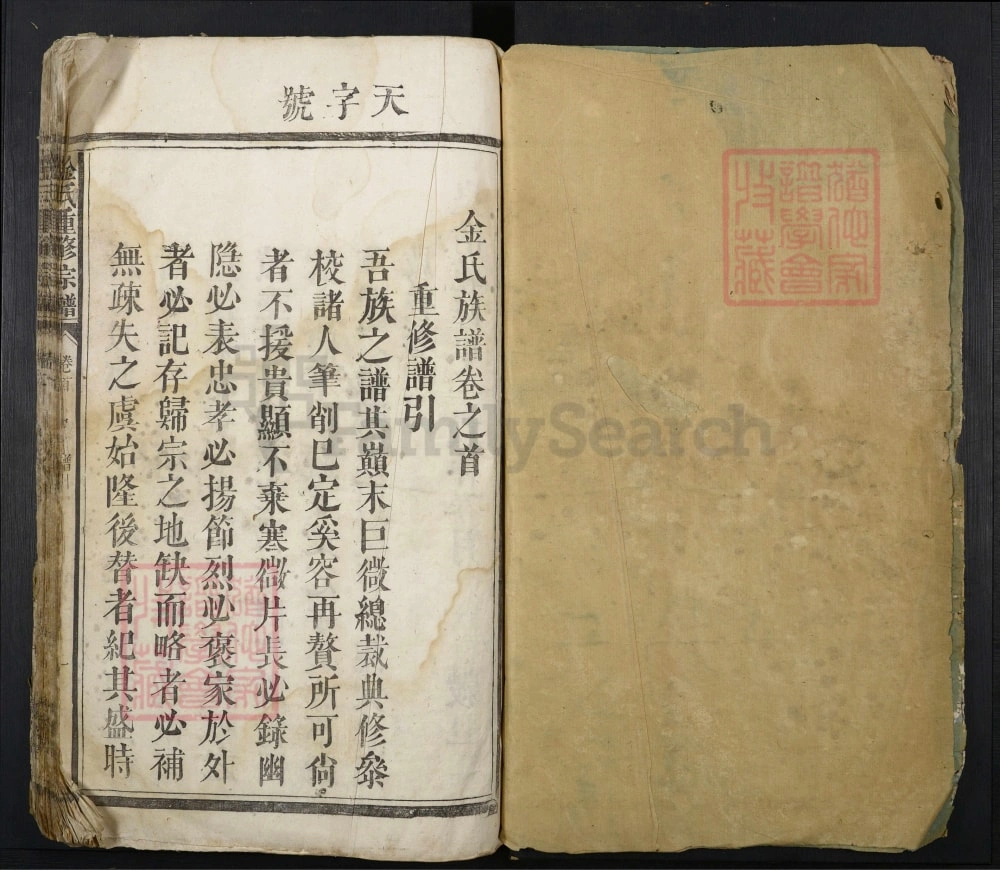 天字號
金氏族譜卷之首
重修譜引
吾族之譜其巔末巨微總裁典修叅
校諸人筆削已定奚容再贅所可尙
者不援貴顯不棄寒微片長必錄幽
隐必表忠孝必揚節烈必褒家於外
者必記存歸宗之地缺而略者必補
無疎失之虞始隆後替者紀其盛時
金氏重修宗譜
卷首
譜引
FamilySearch